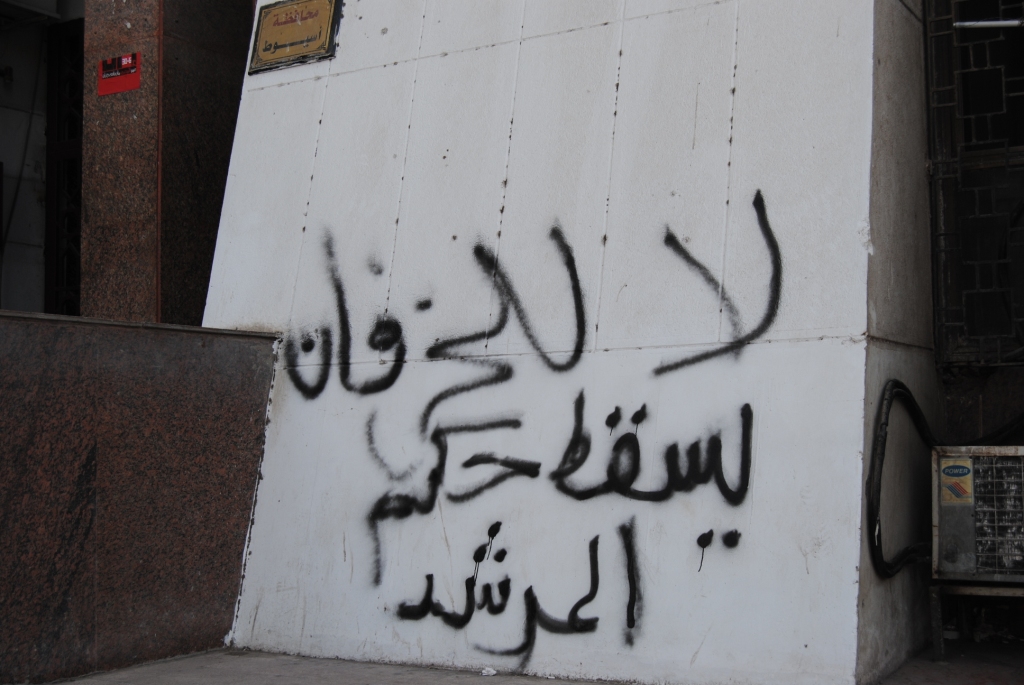 محافظة
أسيوط
لا للخرفان
يسقط حكم
المرشد
POWER